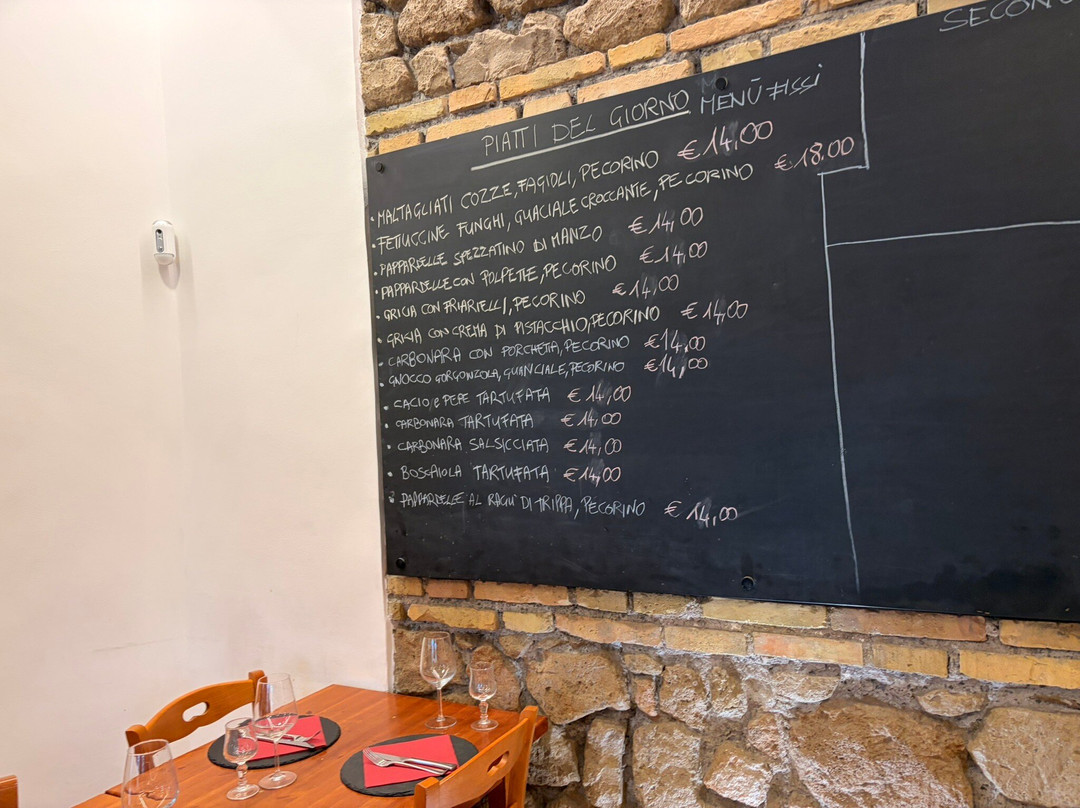 PIATTI DEL GIORNO MENŪ FISSI
SECON
• MALTAGLIATI COZZE, FAGIOLI, PECORINO € 14,00
• FETTUCCINE FUNGHI, GUACIALE CROCCANTE, PECORINO € 18.00
• PAPPARDELLE SPEZZATINO DI MANZO € 14,00
• PAPPARDELLE CON POLPETTE, PECORINO € 14,00
• GRICIA CON FRIARIELLI, PECORINO € 14,00
• GRICIA CON CREMA DI PISTACCHIO, PECORINO € 14,00
• CARBONARA CON PORCHETTA, PECORINO € 14,00
• GNOCCO GORGONZOLA, GUANCIALE, PECORINO € 14,00
• CACIO e PEPE TARTUFATA € 14,00
• CARBONARA TARTUFATA € 14,00
• CARBONARA SALSICCIATA € 14,00
• BOSCAIOLA TARTUFATA € 14,00
• PAPPARDELLE AL RAGU' DI TRIPPA, PECORINO € 14,00